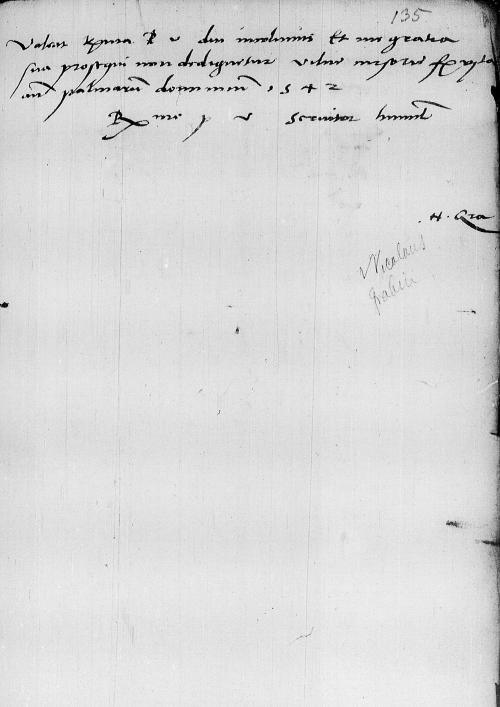 135
Valeat R p v diu incolumis Et me gratia
sua prosequi non dedignetur Vilne
ante palmarum dominicam 1542
R me p v Servitor humil
N. Gra
Nicolaus